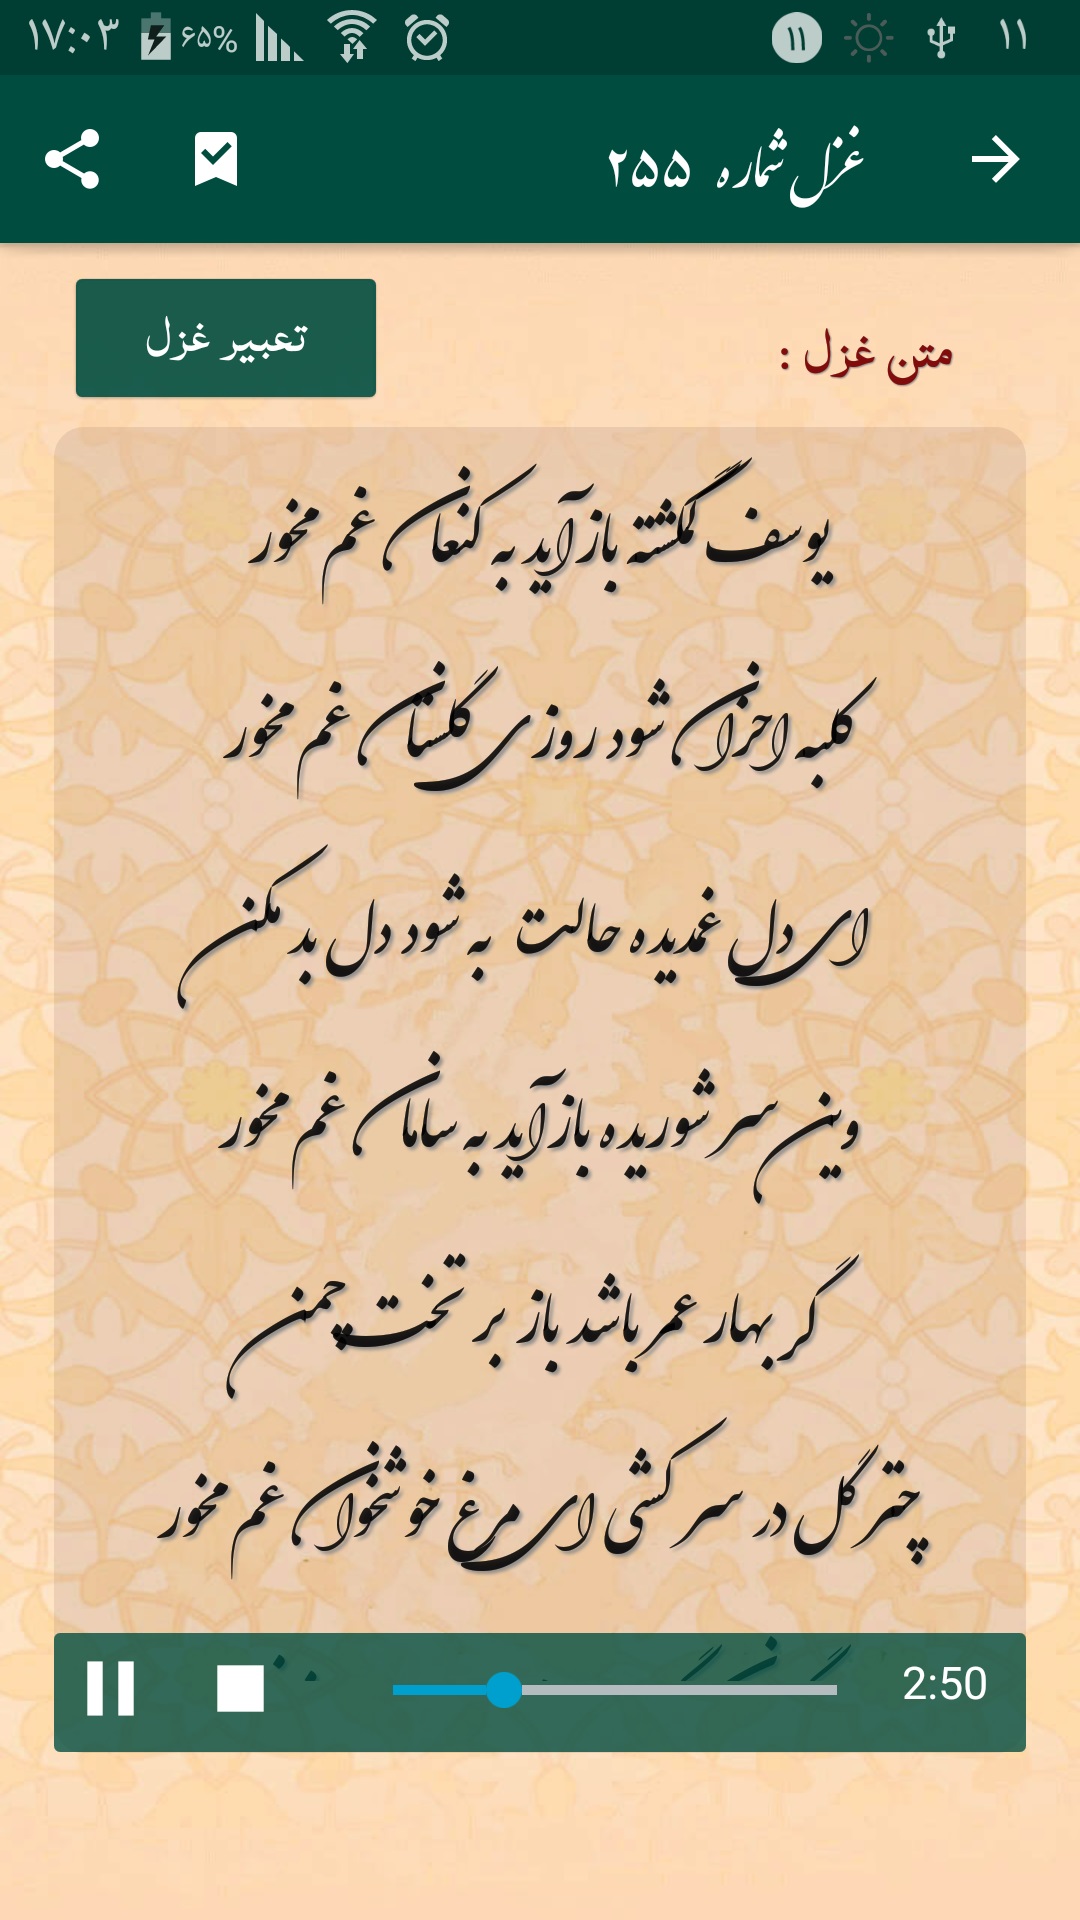 ۱۷:۰۳ ۶۵% ۱۱ ۱۱
غزل شماره ۲۵۵
تعبیر غزل
متن غزل :
یوسف گمگشته بازآید به کنعان غم مخور
کلبه احزان شود روزی گلستان غم مخور
ای دل غمدیده حالت به شود دل بد مکن
وین سر شوریده بازآید به سامان غم مخور
گر بهار عمر باشد باز بر تخت چمن
چتر گل در سر کشی ای مرغ خوشخوان غم مخور
2:50